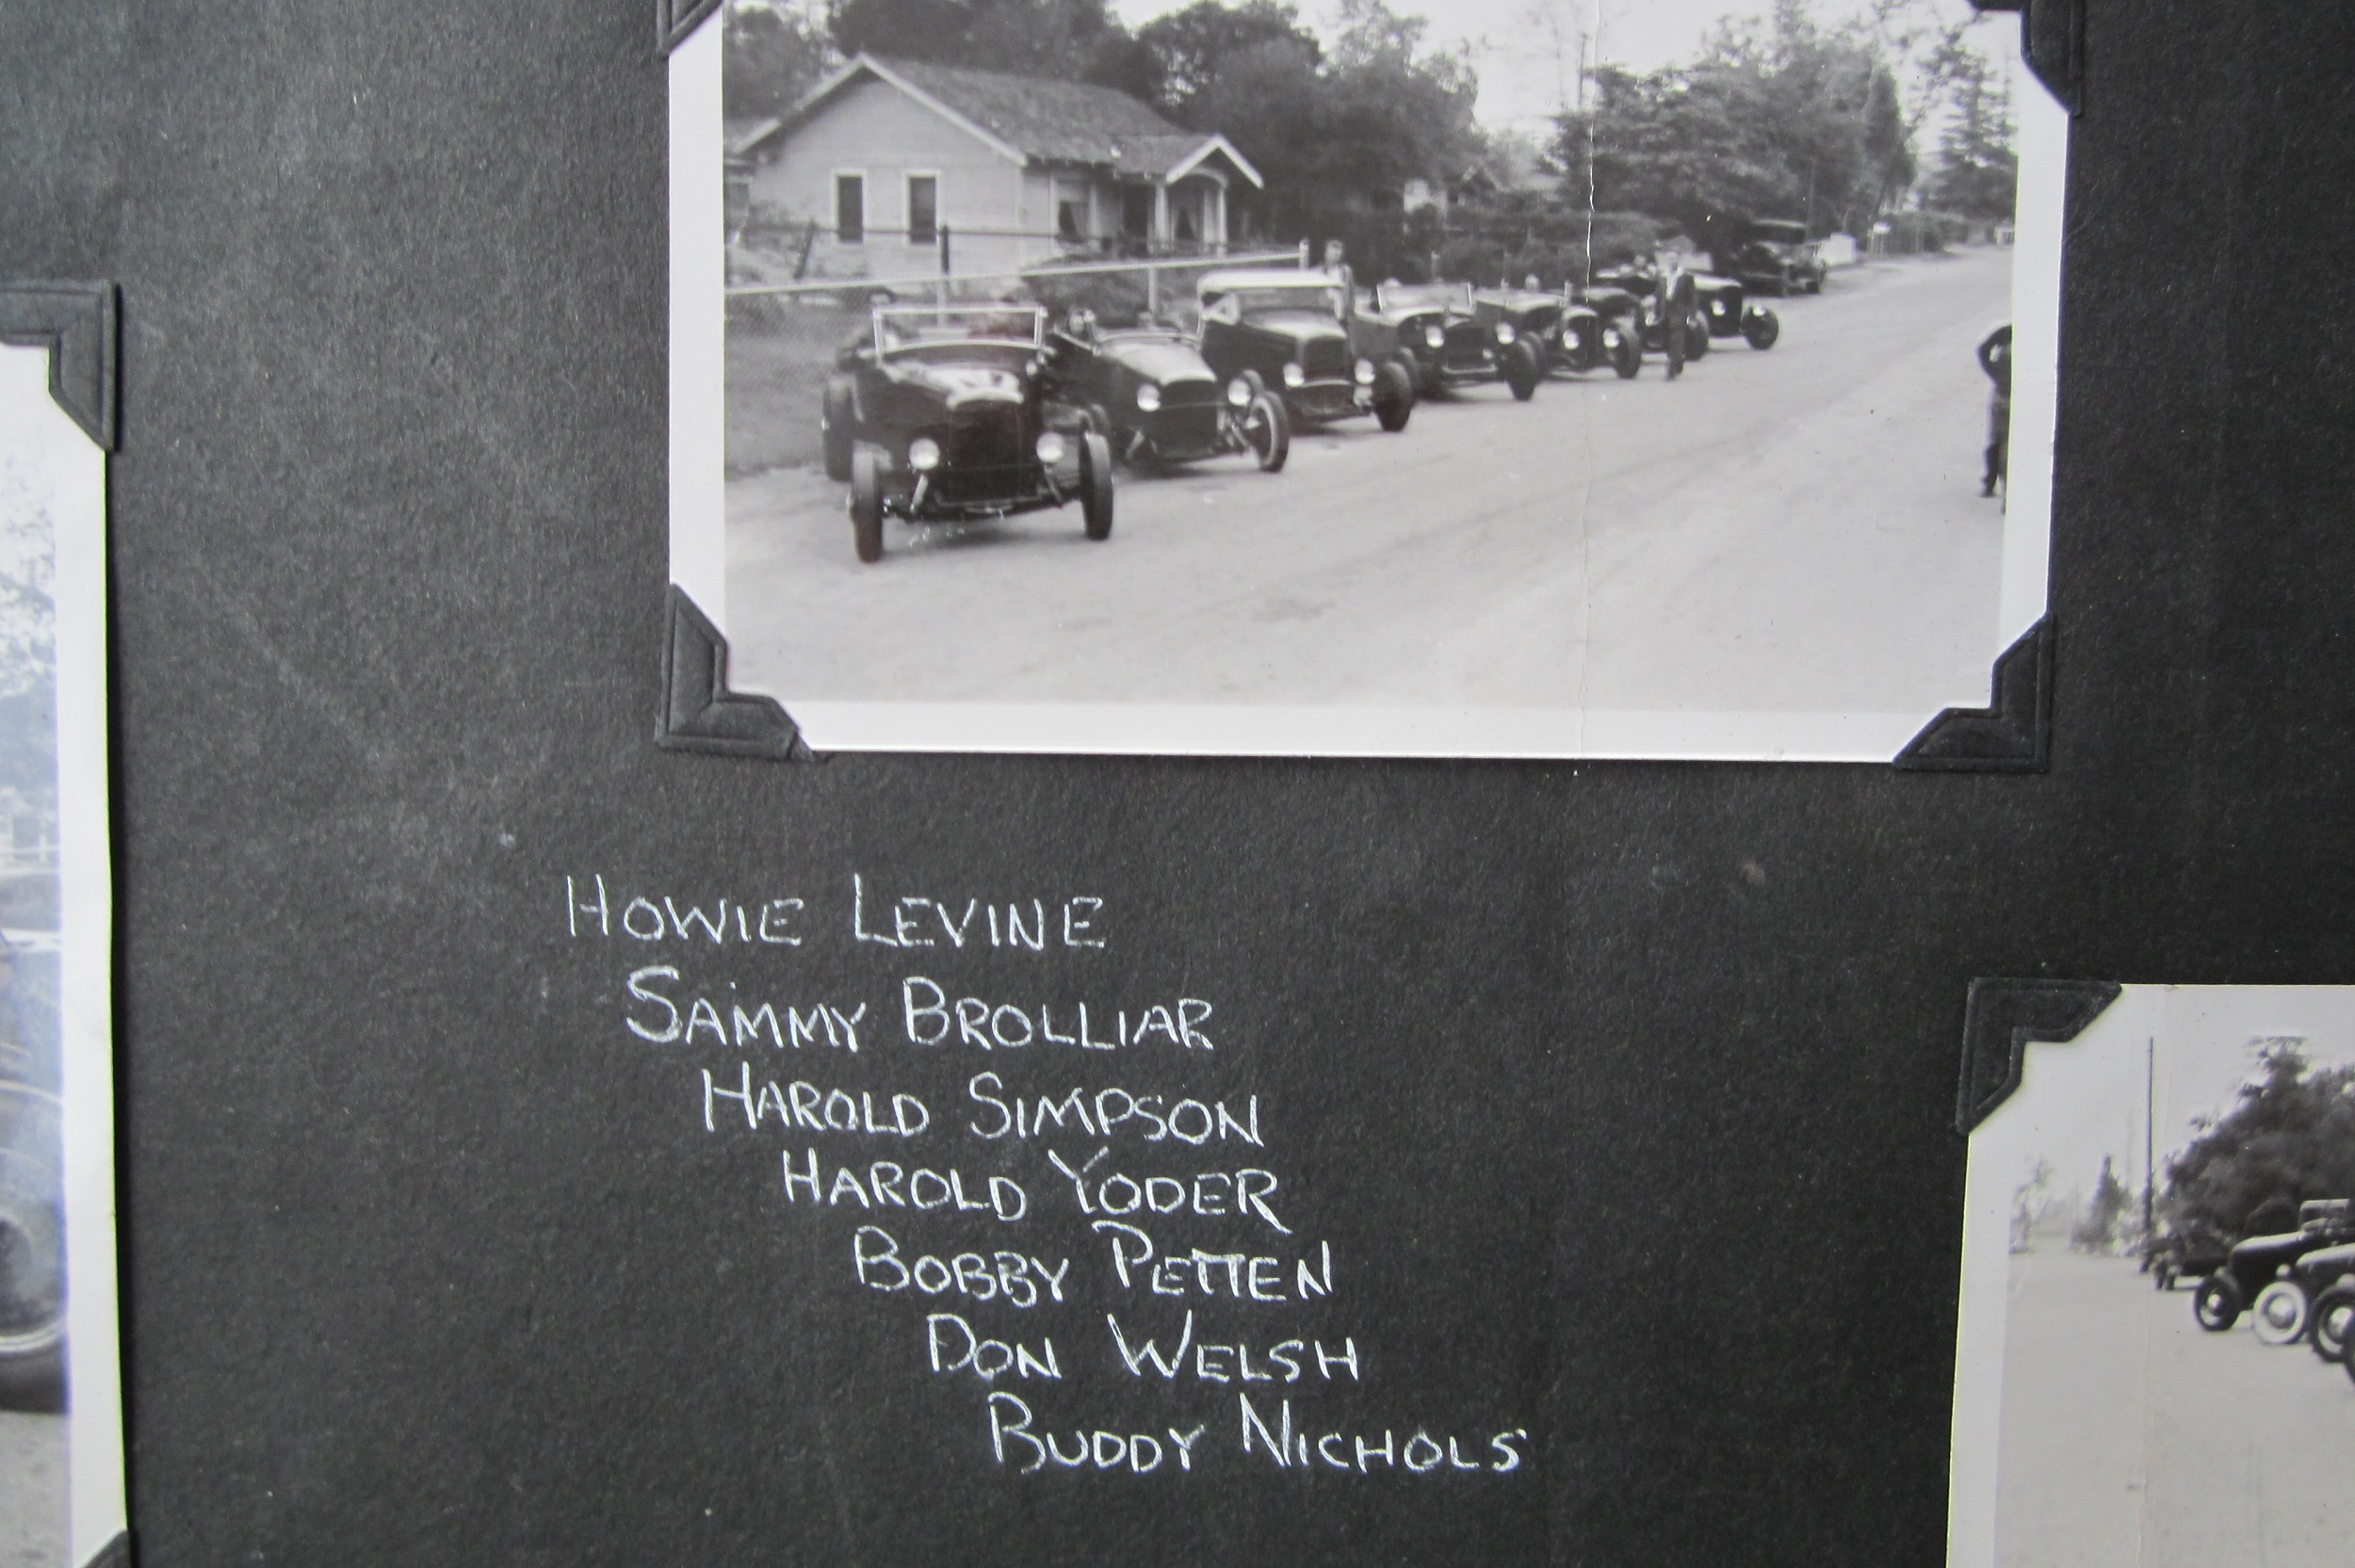 HOWIE LEVINE
SAMMY BROLLIAR
HAROLD SIMPSON
HAROLD YODER
BOBBY PETTEN
DON WELSH
BUDDY NICHOLS